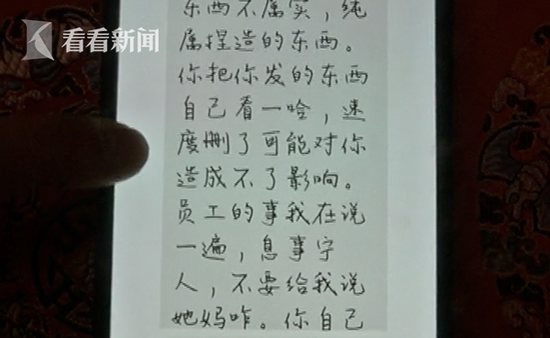 看看新闻
东西不属实，纯
属捏造的东西。
你把你发的东西
自己看一哈，速
度删了可能对你
造成不了影响。
员工的事我在说
一遍，息事宁
人，不要给我说
她妈咋。你自己